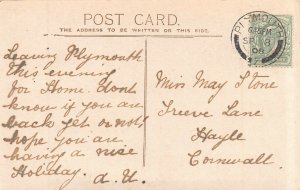 POST CARD.
THE ADDRESS TO BE WRITTEN ON THIS SIDE.
PLYMOUTH
SP
Leaving Plymouth
this evening
for Home. dont
know if you are
back yet or not,
hope you are
having a nice
Holiday. a.U.
Miss May Stone
Treeve Lane
Hayle
Cornwall.